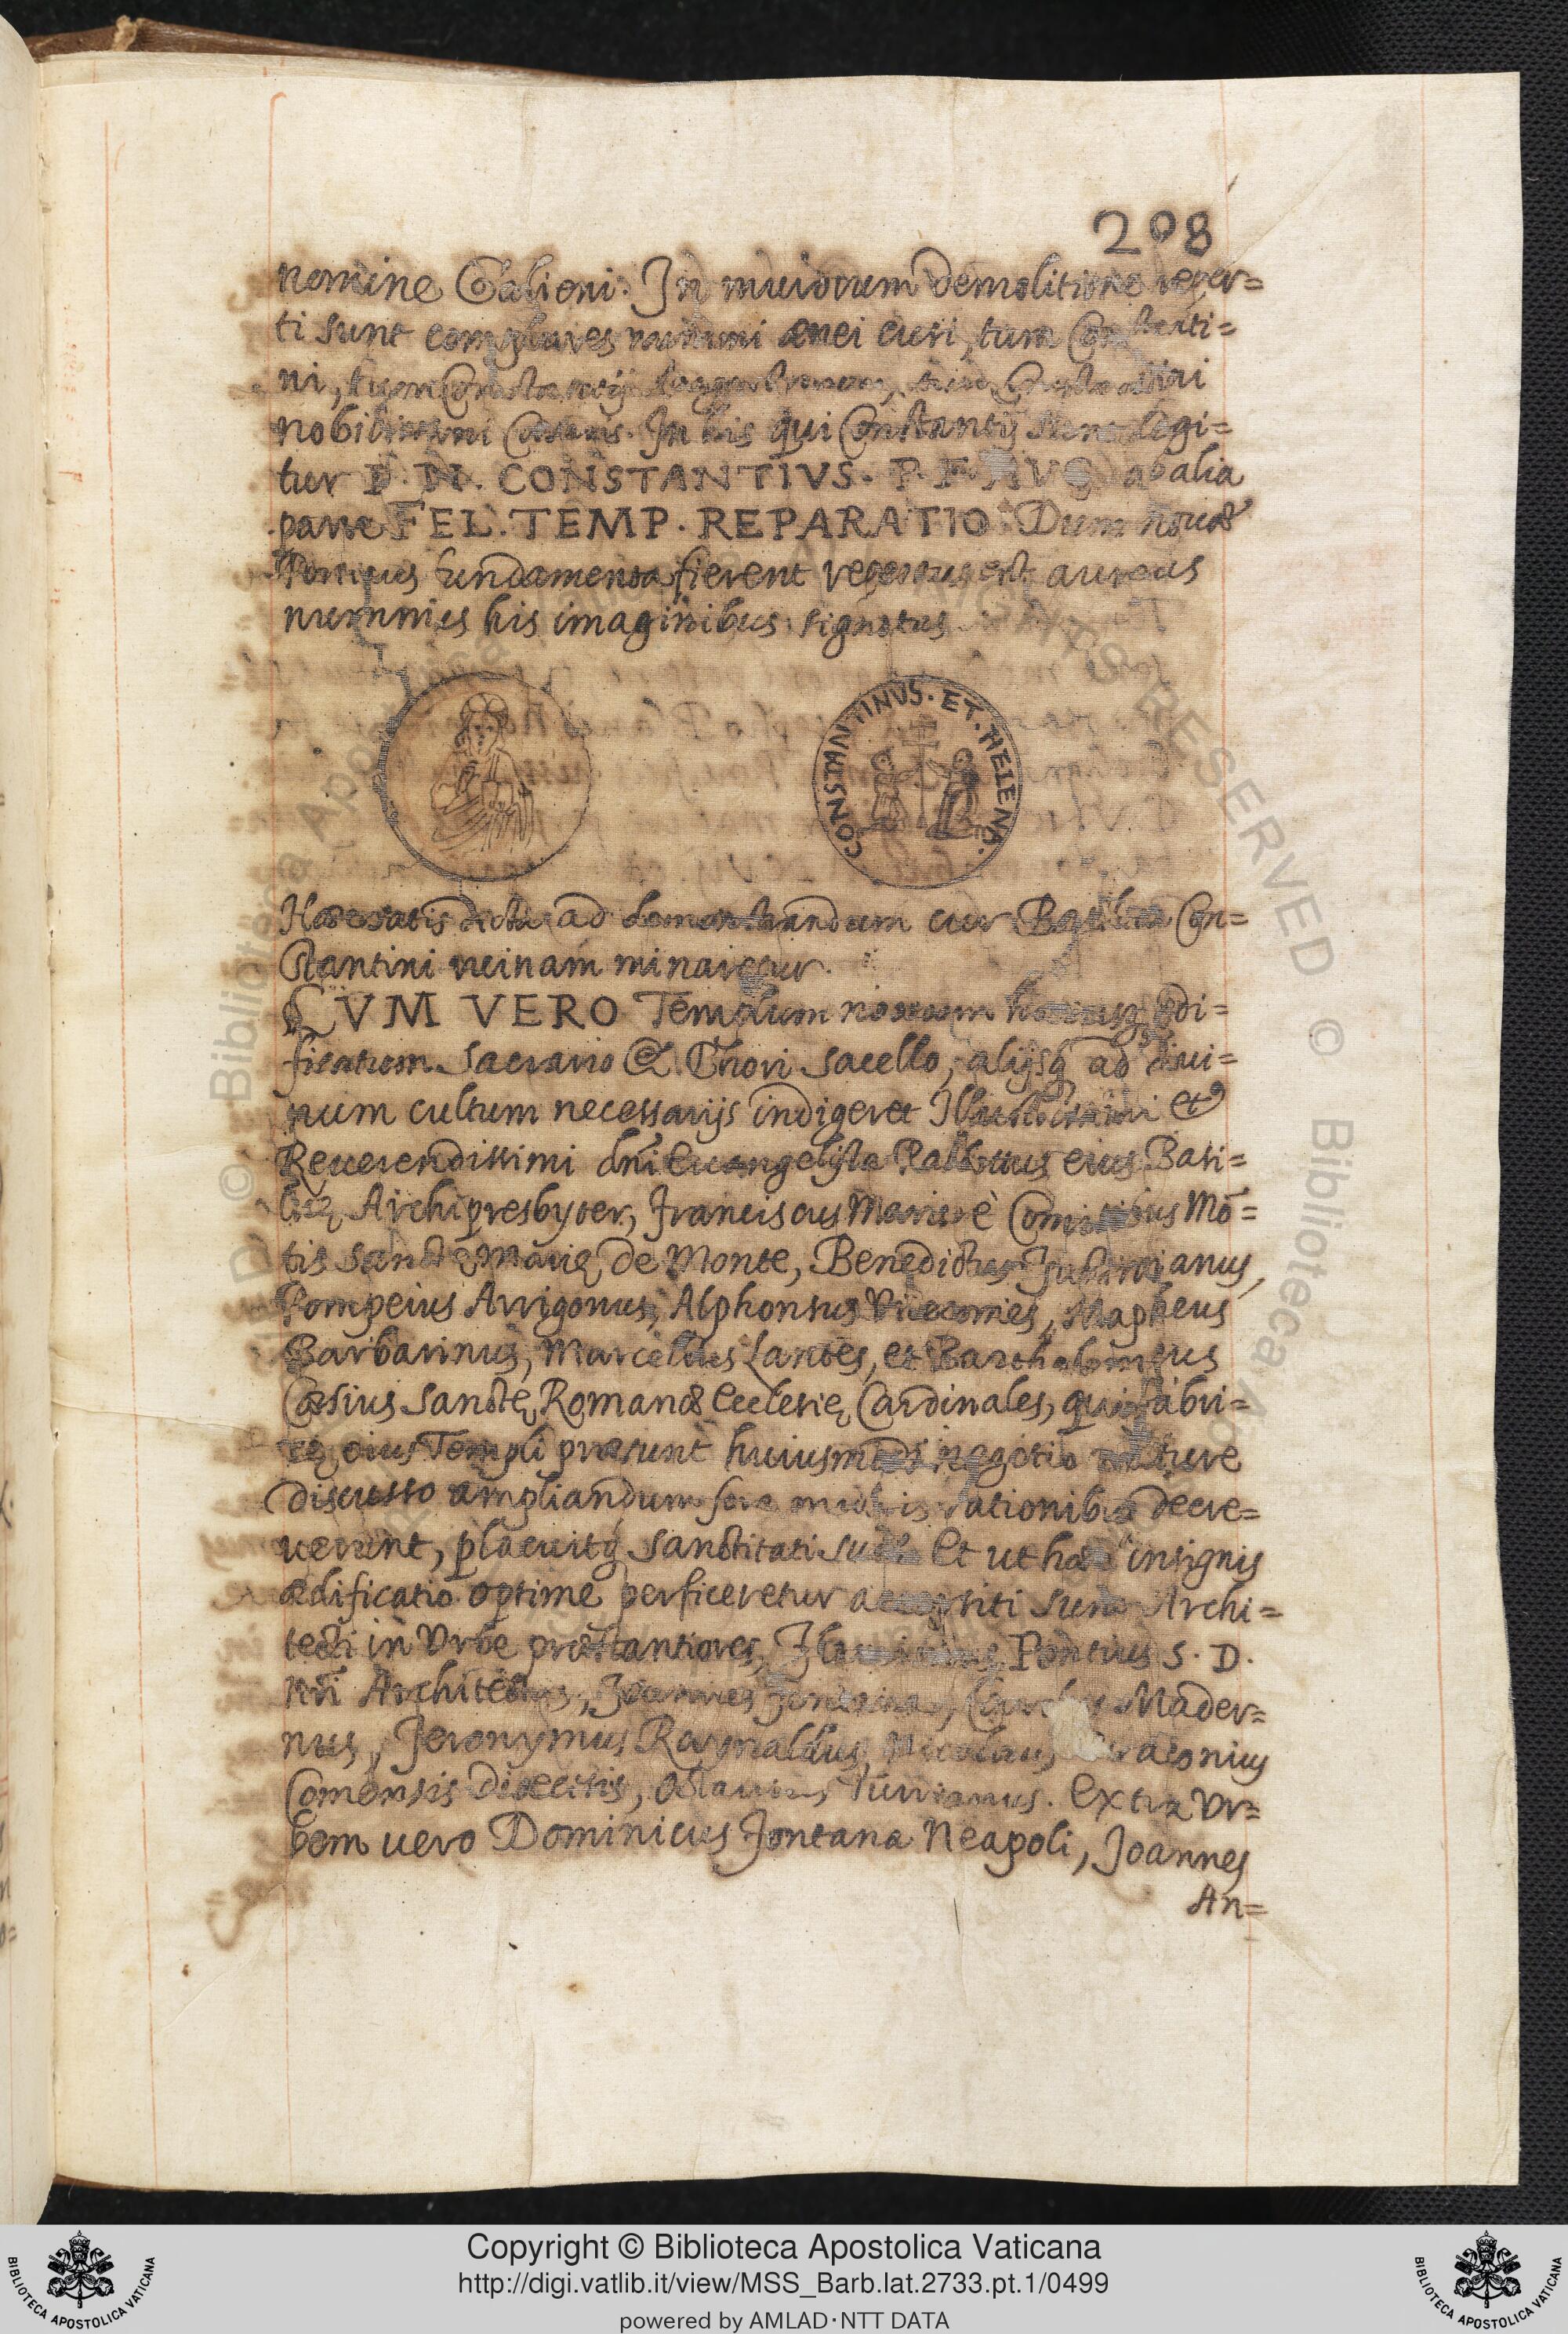 208
nomine Galieni. In murorum demolitione reper=
ti sunt complures nummi ænei cusi, tum Constanti=
ni, tum Constantij
nobilissimi Cæsaris. In his qui Constantij sunt legi=
tur D. N. CONSTANTIVS. P. F. AVG ab alia
parte FEL. TEMP. REPARATIO Dum nouæ
Porticus fundamenta fierent repertus est aureus
nummus his imaginibus signatus
CONSTANTINVS. ET. HELENA.
Hæc satis dicta ad demonstrandum cur Basilica Con=
stantini ruinam minaretur.
CVM VERO Templum nouum ędi=
ficatum Sacrario & Chori sacello, alijsq̃ ad diui=
num cultum necessarijs indigeret Illustrissimi et
Reuerendissimi dñi Euangelista Pallottus eius Basi=
licę Archipresbyter, Franciscus Maria è Comitibus Mõ=
tis Sanctę Marię de Monte, Benedictus Justinianus,
Pompeius Arrigonus, Alphonsus Vicecomes, Mapheus
Barbarinus, Marcellus Lantes, et Bartholomeus
Cæsius Sanctę Romanæ Ecclesię Cardinales, qui fabri=
cę eius Templi præsunt huiusmodi negotio mature
discusso ampliandum fore multis rationibus decre=
uerunt, placuitq̃ Sanctitati Suæ. Et ut hæc insignis
ædificatio optime perficeretur accersiti sunt Archi=
tecti in Vrbe præstantiores, Flaminius Pontius S. D.
Nři Architectus, Joannes Fontana, Carolus Mader=
nus, Jeronymus Raynaldus, Nicolaus Braconius
Comensis diœcesis, Octauius Turrianus. Extra Vr=
bem uero Dominicus Fontana Neapoli, Joannes
An=
Copyright © Biblioteca Apostolica Vaticana
http://digi.vatlib.it/view/MSS_Barb.lat.2733.pt.1/0499
powered by AMLAD·NTT DATA